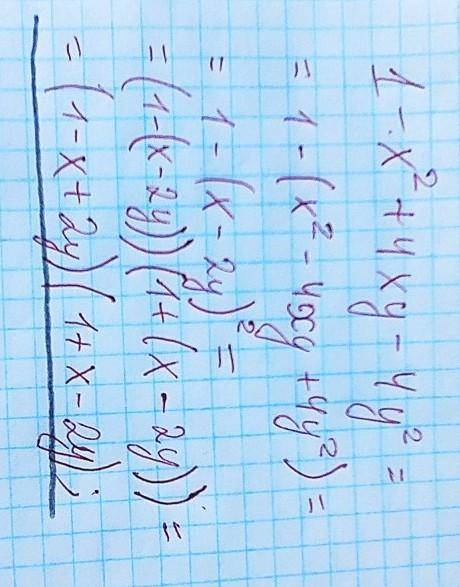 1 - x² + 4xy - 4y² =
= 1 - (x² - 4xy + 4y²) =
= 1 - (x - 2y)² =
= (1-(x-2y))(1+(x-2y)) =
= (1-x+2y)(1+x-2y);